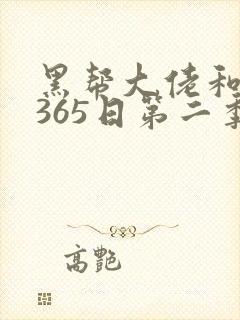 黑帮大佬和
365日第二季
高艷